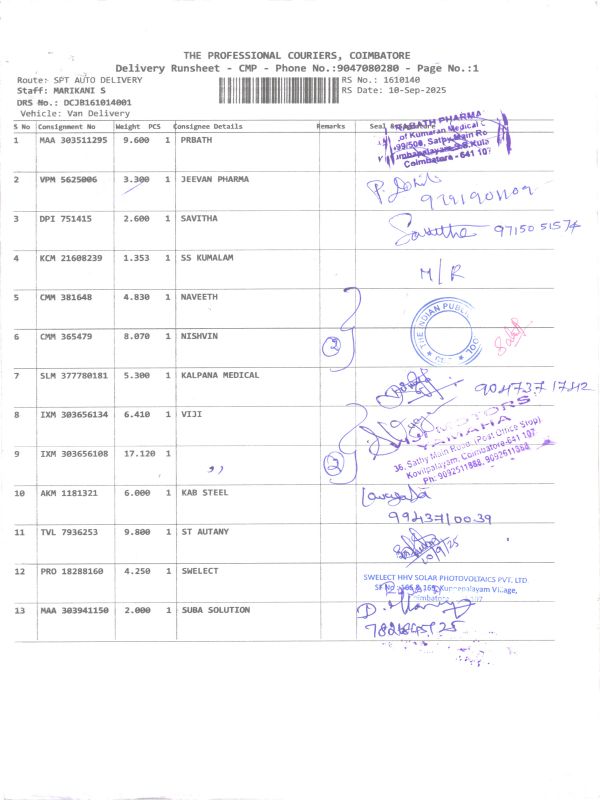 THE PROFESSIONAL COURIERS, COIMBATORE
Delivery Runsheet - CMP - Phone No.:9047080280 - Page No.:1
Route: SPT AUTO DELIVERY RS No.: 1610140
Staff: MARIKANI S RS Date: 10-Sep-2025
DRS No.: DCJB161014001
Vehicle: Van Delivery
S No Consignment No Weight PCS Consignee Details Remarks Seal &
1 MAA 303511295 9.600 1 PRBATH
PHARMA
of Kumaran Medical
99/506, Sathy Main Ro
Coimbatore - 641 107
2 VPM 5625006 3.300 1 JEEVAN PHARMA
3 DPI 751415 2.600 1 SAVITHA Savitha 9715051574
4 KCM 21608239 1.353 1 SS KUMALAM M/R
5 CMM 381648 4.830 1 NAVEETH
THE INDIAN PUBLIC
6 CMM 365479 8.070 1 NISHVIN 2
7 SLM 377780181 5.300 1 KALPANA MEDICAL 9047371742
8 IXM 303656134 6.410 1 VIJI
MOTORS
YAMAHA
36, Sathy Main Road, (Post Office Stop)
Kovilpalayam, Coimbatore-641 107
Ph: 9092511988, 9092611988
9 IXM 303656108 17.120 1 ,, 2
10 AKM 1181321 6.000 1 KAB STEEL
9943710039
11 TVL 7936253 9.800 1 ST AUTANY
10/9/25
12 PRO 18288160 4.250 1 SWELECT
SWELECT HHV SOLAR PHOTOVOLTAICS PVT. LTD
SF No: 166 & 169, Kuppepalayam Village,
13 MAA 303941150 2.000 1 SUBA SOLUTION